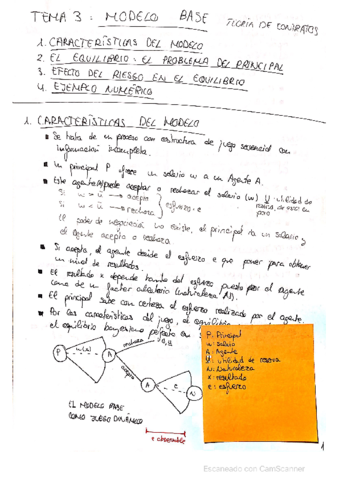 TEMA 3: MODELO BASE TEORÍA DE CONTRATOS
1. CARACTERÍSTICAS DEL MODELO
2. EL EQUILIBRIO: EL PROBLEMA DEL PRINCIPAL
3. EFECTO DEL RIESGO EN EL EQUILIBRIO
4. EJEMPLO NUMÉRICO
1. CARACTERÍSTICAS DEL MODELO
Se trata de un proceso con estructura de juego secuencial con
información incompleta.
Un principal P ofrece un salario w a un Agente A.
Este agente A puede aceptar o rechazar el salario (w)
acepta
rechaza
esfuerzo e
el principal da un salario y
el agente acepta o rechaza
Si acepta, el agente decide el esfuerzo e que poner para obtener
un nivel de resultados.
El resultado x depende tanto del esfuerzo puesto por el agente
como de un factor aleatorio (naturaleza N).
El principal sabe con certeza el esfuerzo realizado por el agente.
Por las características del juego, el
el equilibrio bayesiano perfecto en
P: Principal
w: salario
A: Agente
u: utilidad de reserva
N: Naturaleza
x: resultado
e: esfuerzo
P w(x) A rechaza
acepta A e N
EL MODELO BASE
COMO JUEGO DINÁMICO
e observable
1
Escaneado con CamScanner